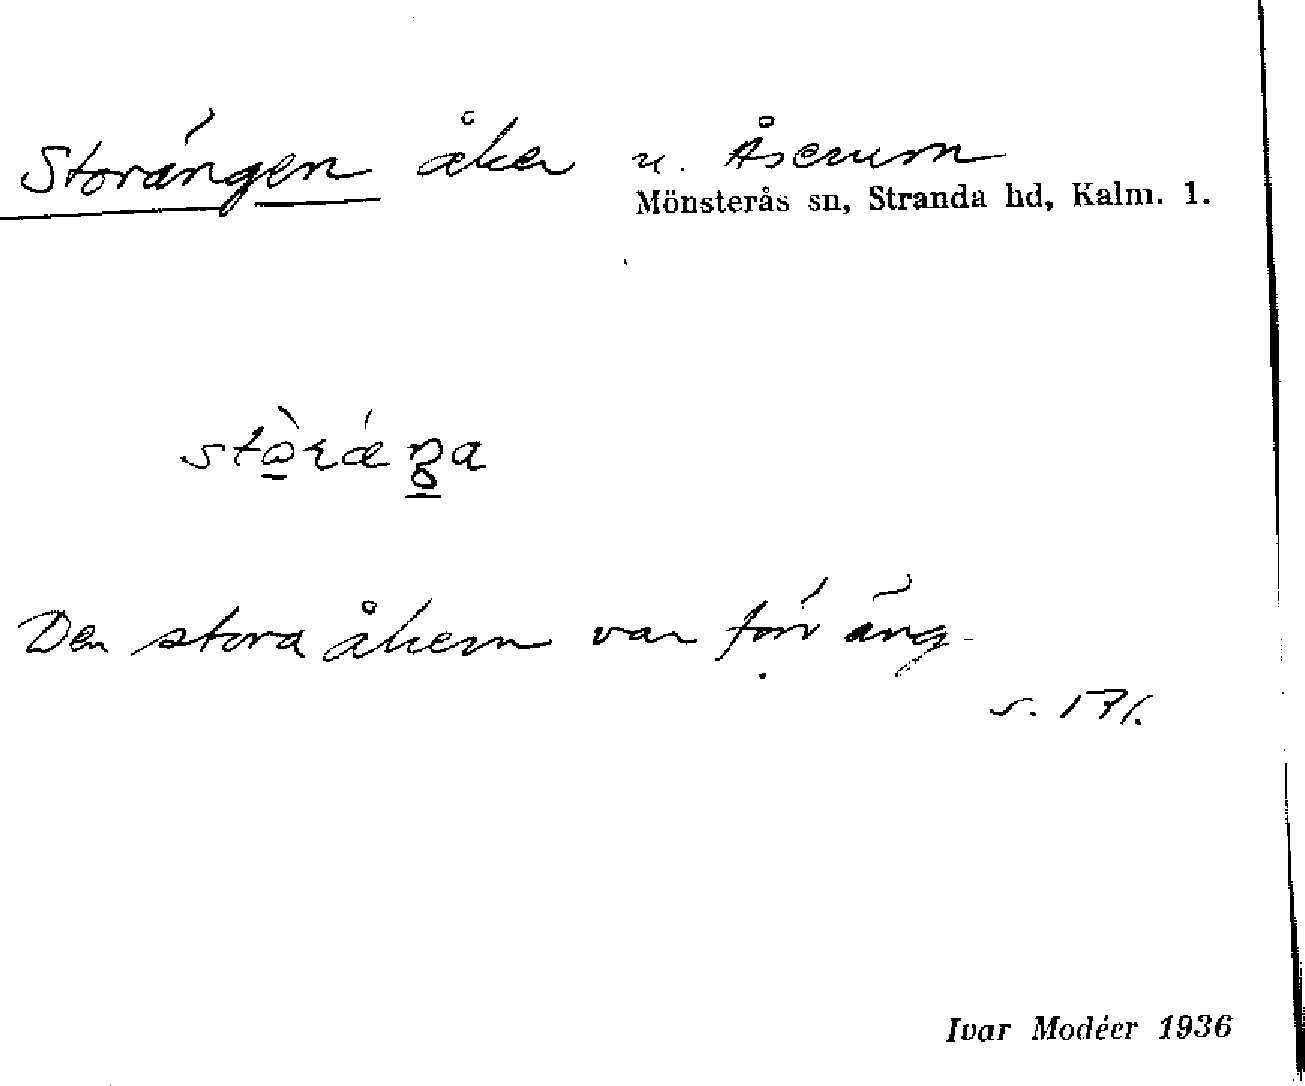 Storängen åker u. Åserum
Mönsterås sn, Stranda hd, Kalm. l.
Den stora åkern var förr äng
s. 171.
Ivar Modéer 1936